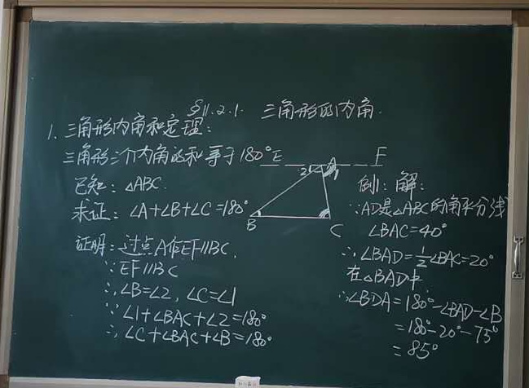 §11.2.1. 三角形的内角.
1. 三角形内角和定理:
三角形三个内角的和等于180°
已知: △ABC.
求证: ∠A+∠B+∠C=180°
证明: 过点A作EF∥BC.
∵EF∥BC
∴∠B=∠2, ∠C=∠1
∵∠1+∠BAC+∠2=180°
∴∠C+∠BAC+∠B=180°
E A F
2 1
B C
例: 解:
∵AD是△ABC的角平分线
∠BAC=40°
∴∠BAD=½∠BAC=20°
在△BAD中.
∴∠BDA=180°-∠BAD-∠B
=180°-20°-75°
=85°